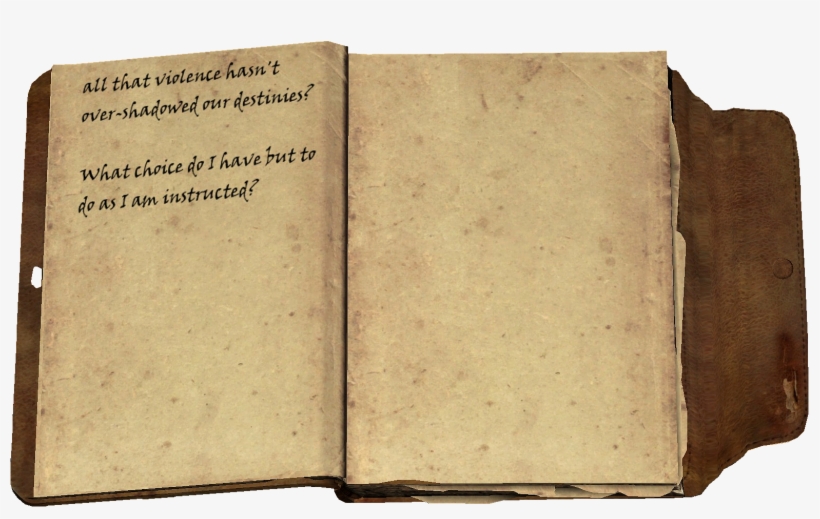 all that violence hasn't
over-shadowed our destinies?
What choice do I have but to
do as I am instructed?